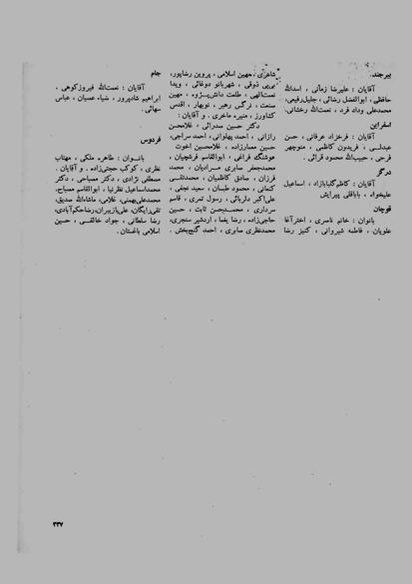 بیرجند.
آقایان : علیرضا زمانی ، اسدالله
حافظی ، ابوالفضل رضائی ، جلیل رفیعی،
محمدعلی وداد فرد ، نعمت‌الله رخشانی.
اسفراین
آقایان : فرخزاد عرفانی ، حسن
عبدلی ، فریدون کاظمی ، منوچهر
فرحی ، حبیب‌الله محمود قرائی .
درگز
آقایان : کاظم گلبابازاد ، اسماعیل
علیخواه ، باباقلی پیرایش
قوچان
بانوان : خانم ناصری ، اخترآغا
علویان ، فاطمه شیروانی ، کنیز رضا
شاهری ، مهین اسلامی ، پروین رضاپور،
بی‌بی ذوقی ، شهربانو دوغائی ، ویدا
نعمت‌الهی ، طلعت دانش‌پژوه ، مهین
صنعت ، نرگس رهبر ، نوبهار ، اقدس
کشاورز ، منیره ماخری . و آقایان :
دکتر حسین صدرائی ، غلامحسن
رازانی ، احمد پهلوانی ، احمد سراجی،
حسین معمارزاده ، غلامحسین اخوت
هوشنگ فراغی ، ابوالقاسم فرشچیان ،
محمدجعفر صابری ، مرادیان ، محمد
فرزان ، صادق کاظمیان ، محمدتقی
کنعانی ، محمود طبسان ، سعید نجفی ،
علی‌اکبر دلربائی ، رسول ثمری ، قاسم
سرداری ، محمدحسن ثابت ، حسین
حاجی‌زاده ، رضا یغما ، اردشیر سنجری،
محمدنظری صابری ، احمد گنج‌بخش .
جام
آقایان : نعمت‌الله فیروزکوهی ،
ابراهیم شادپرور ، ضیاء عسیان ، عباس
سهائی.
فردوس
بانوان : طاهره ملکی ، مهتاب
نظری ، کوکب حجتی‌زاده . و آقایان .
مصطفی نژادی ، دکتر مصباحی ، دکتر
محمداسماعیل نظرنیا ، ابوالقاسم مصباح،
محمدعلی بهمنی، غلامی، ماشاءالله صدیق،
تقی رایگان، علی ، رضاحکم‌آبادی،
رضا سلطانی ، جواد خالقی ، حسین
اسلامی باغستان .
۲۳۷